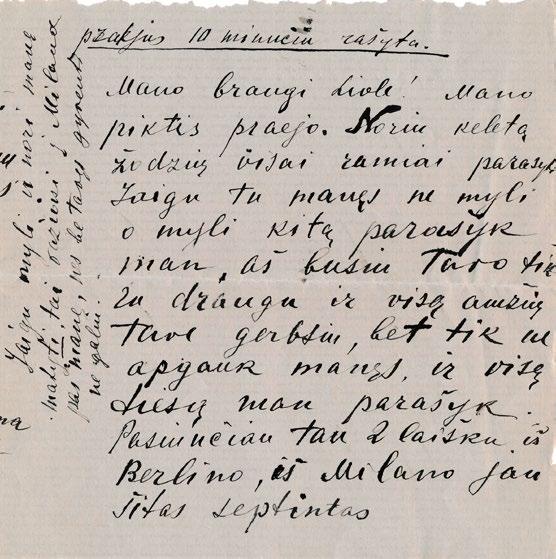 praėjus 10 minučiu rašyta.
Mano brangi Liole! Mano
piktis praejo. Noriu keletą
žodzių visai ramiai parašyk
Jaigu tu manęs ne myli
o myli kitą parašyk
man, aš busiu Tavo tik
ru draugu ir visą amžių
tave gerbsiu, bet tik ne
apgauk manęs, ir visą
tiesą man parašyk.
Pasiunčiau tau 2 laišku iš
Berlino, iš Milano jau
šitas septintas
Jaigu myli ir nori manę
matyti, tai važiuoni į Milaną
pas manę, nes be tavęs gyventi
ne galiu.
na